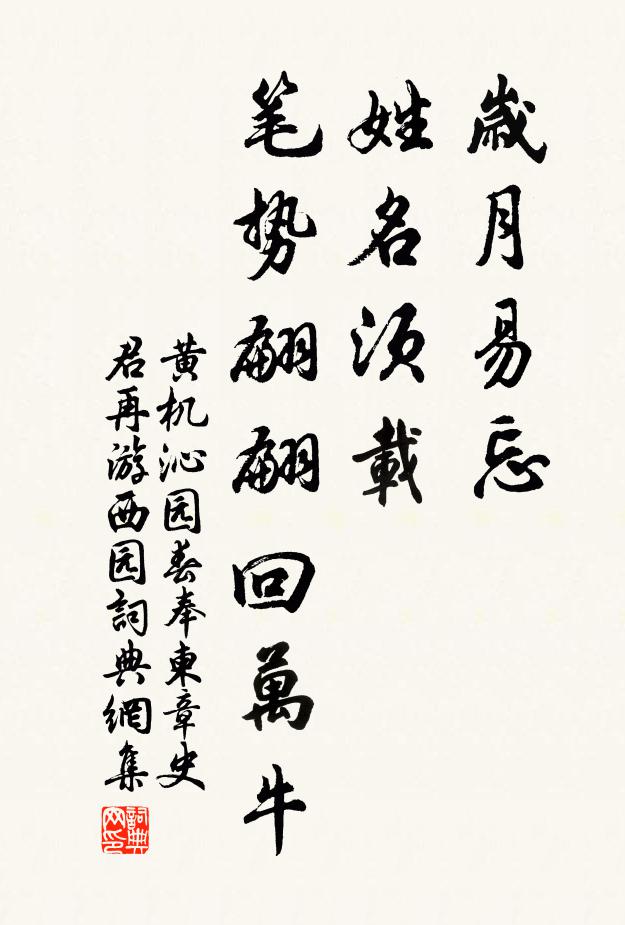 歲月易忘
姓名须載
笔势翩翩回萬牛
黄机沁园春奉東章史
君再游西园詞典網集
詞典网印